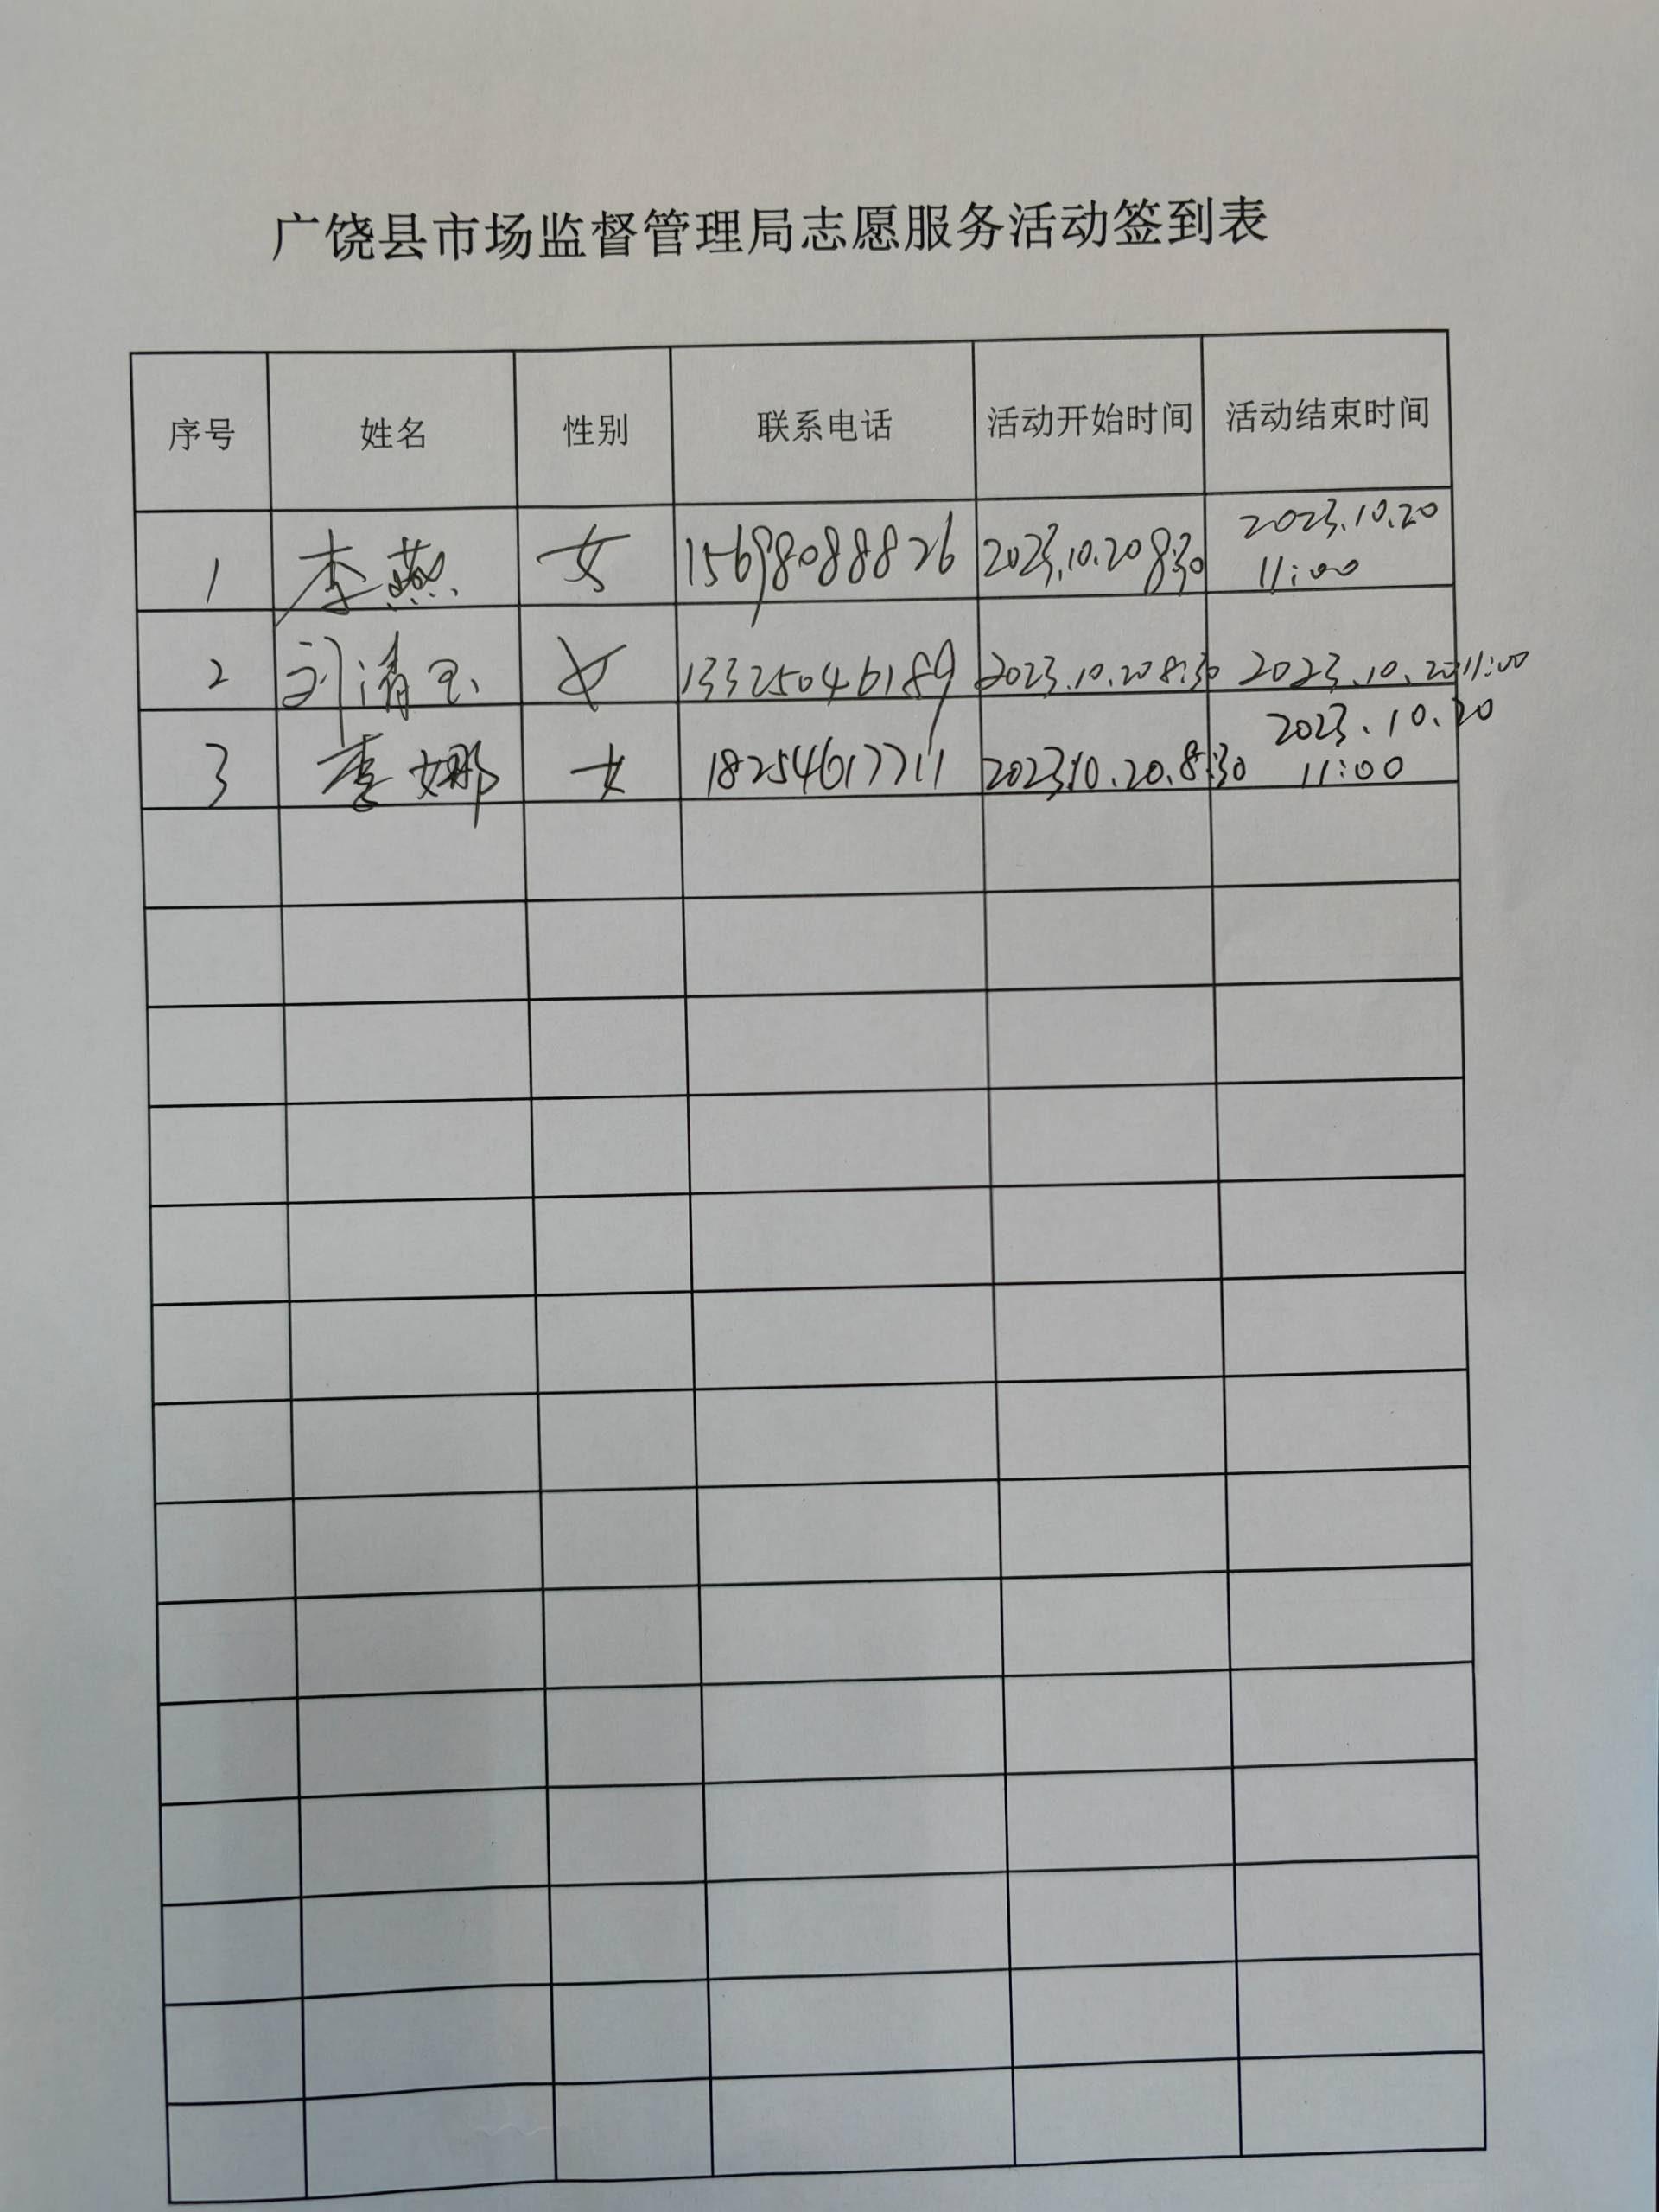 广饶县市场监督管理局志愿服务活动签到表
序号 姓名 性别 联系电话 活动开始时间 活动结束时间
1 李燕 女 15698088826 2023.10.20 8:30 2023.10.20 11:00
2 刘清玉 女 13325046189 2023.10.20 8:30 2023.10.20 11:00
3 李娜 女 18254617711 2023.10.20.8:30 2023.10.20 11:00